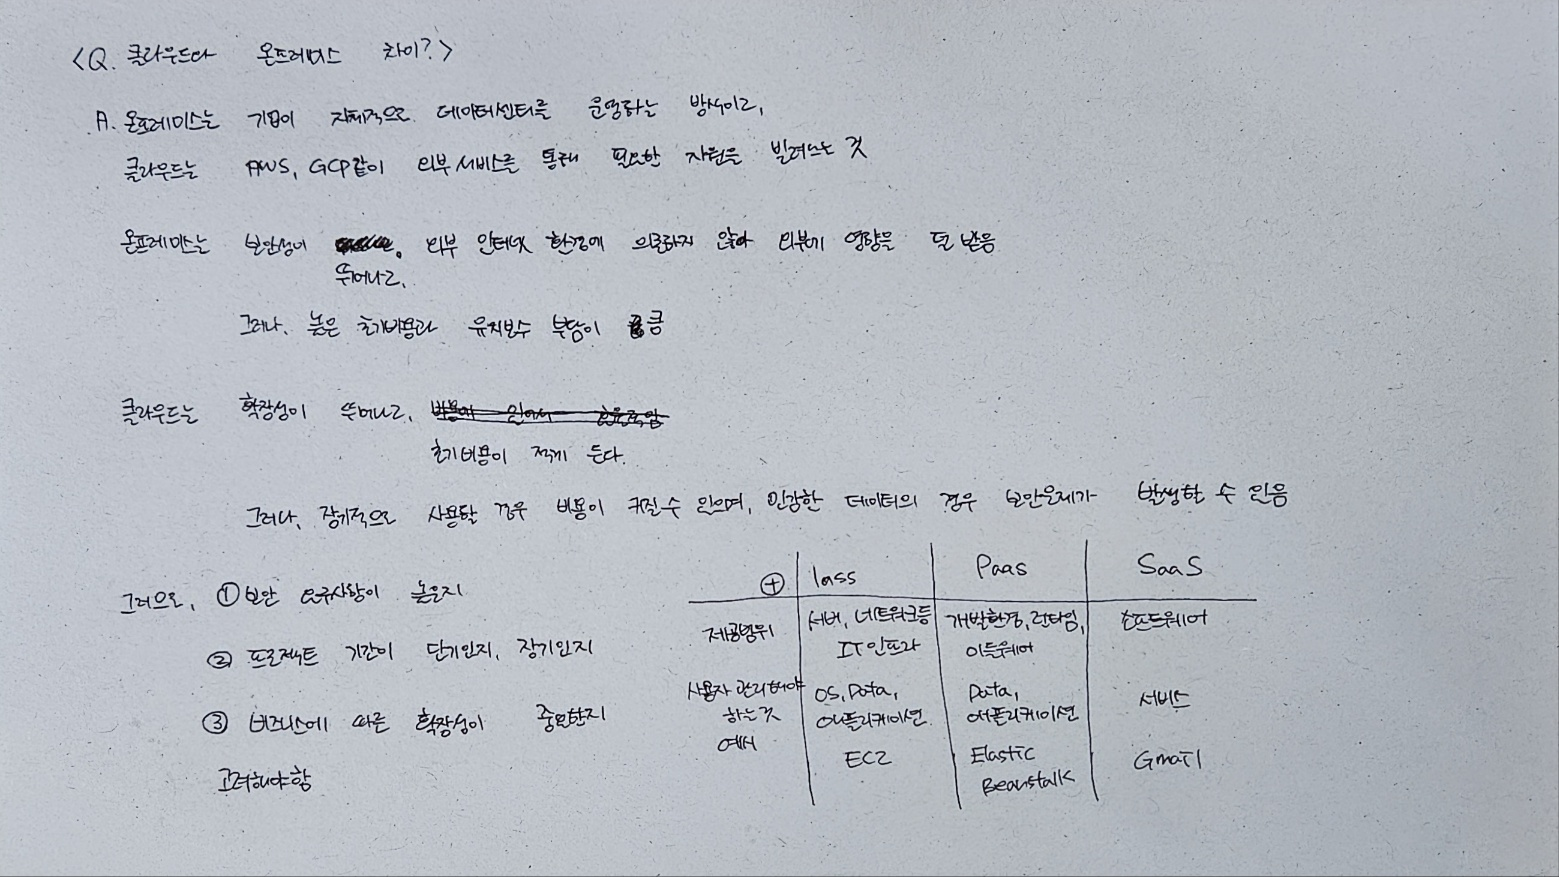 <Q. 클라우드와 온프레미스 차이?>
A. 온프레미스는 기업이 자체적으로 데이터센터를 운영하는 방식이고,
클라우드는 AWS, GCP같이 외부 서비스를 통해 필요한 자원을 빌려쓰는 것
온프레미스는 보안성이 외부 인터넷 환경에 의존하지 않아 외부에 영향을 덜 받음
뛰어나고,
그러나, 높은 초기비용과 유지보수 부담이 큼
클라우드는 확장성이 뛰어나고,
초기비용이 적게 든다.
그러나, 장기적으로 사용할 경우 비용이 커질 수 있으며, 민감한 데이터의 경우 보안문제가 발생할 수 있음
그러므로, ① 보안 요구사항이 높은지
② 프로젝트 기간이 단기인지, 장기인지
③ 비즈니스에 따른 확장성이 중요한지
고려해야함
+ Iass Paas SaaS
제공범위 서버, 네트워크등 개발환경, 런타임, 소프트웨어
IT인프라 미들웨어
사용자 관리해야 OS, Data, Data, 서비스
하는것 어플리케이션 어플리케이션
예시 EC2 Elastic Gmail
Beanstalk